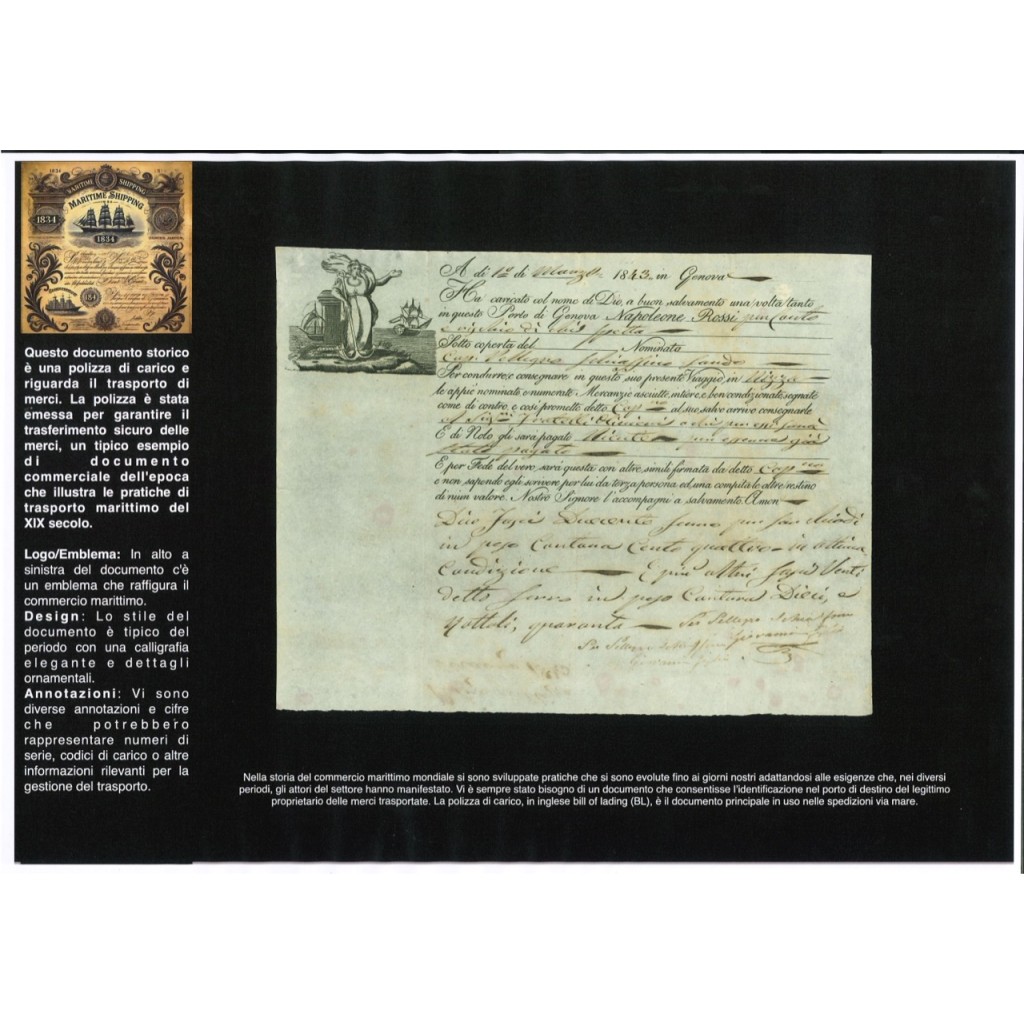 MARITIME SHIPPING
MARITIME SHIPPING
1834
1834
Questo documento storico
è una polizza di carico e
riguarda il trasporto di
merci. La polizza è stata
emessa per garantire il
trasferimento sicuro delle
merci, un tipico esempio
di documento
commerciale dell'epoca
che illustra le pratiche di
trasporto marittimo del
XIX secolo.
Logo/Emblema: In alto a
sinistra del documento c'è
un emblema che raffigura il
commercio marittimo.
Design: Lo stile del
documento è tipico del
periodo con una calligrafia
elegante e dettagli
ornamentali.
Annotazioni: Vi sono
diverse annotazioni e cifre
che potrebbero
rappresentare numeri di
serie, codici di carico o altre
informazioni rilevanti per la
gestione del trasporto.
A di 12 di Marzo 1843 in Genova
Ha caricato col nome di Dio, a buon salvamento una volta tanto
in questo Porto di Genova Napoleone Rossi per Conto
e rischio di chi spetta
Sotto coperta del Nominata
Cap. Pellegro Schiaffino
Per condurre, e consegnare in questo suo presente Viaggio, in Nizza
le appiè nominate e numerate Mercanzie asciutte, intiere, e ben condizionate, segnate
come di contro, e così promette detto Cap.no al suo salvo arrivo consegnarle
E di Nolo gli sarà pagato Niente per essere già
stato pagato
E per Fede del vero, sarà questa con altre simile firmata da detto Cap.no
e non sapendo egli scrivere, per lui da terza persona ed una compita le altre restino
di niun valore. Nostro Signore l'accompagni a salvamento. Amen
Dico Fasci Duecento ferro per
in peso Cantara Cento quattro in ottima
Condizione E più altri fasci Venti
detto ferro in peso Cantara Dieci, e
Rottoli, quaranta
Nella storia del commercio marittimo mondiale si sono sviluppate pratiche che si sono evolute fino ai giorni nostri adattandosi alle esigenze che, nei diversi
periodi, gli attori del settore hanno manifestato. Vi è sempre stato bisogno di un documento che consentisse l'identificazione nel porto di destino del legittimo
proprietario delle merci trasportate. La polizza di carico, in inglese bill of lading (BL), è il documento principale in uso nelle spedizioni via mare.